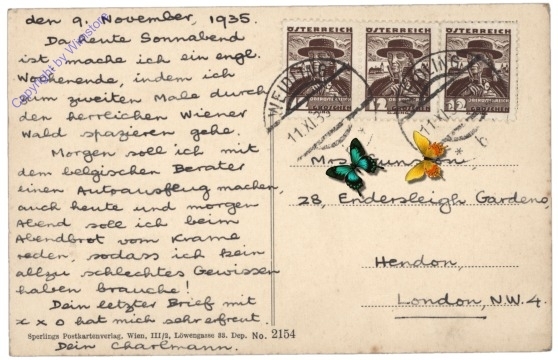 den 9. November, 1935.
Da heute Sonnabend
ist mache ich ein engl.
Wochenende, indem ich
zum zweiten Male durch
den herrlichen Wiener
Wald spazieren gehe.
Morgen soll ich mit
dem belgischen Berater
einen Autoausflug machen,
auch heute und morgen
Abend soll ich beim
Abendbrot vom Krame
reden, sodass ich kein
allzu schlechtes Gewissen
haben brauche!
Dein letzter Brief mit
x x o hat mich sehr erfreut.
Dein Charlmann.
Sperlings Postkartenverlag, Wien, III/2, Löwengasse 33. Dep. No. 2154
Copyright by Winstone
ÖSTERREICH
12
GROSCHEN
ÖSTERREICH
12
GROSCHEN
ÖSTERREICH
12
GROSCHEN
11.XI.35
11.XI
Mrs
28, Endersleigh Gardens,
Hendon,
London, N.W. 4.